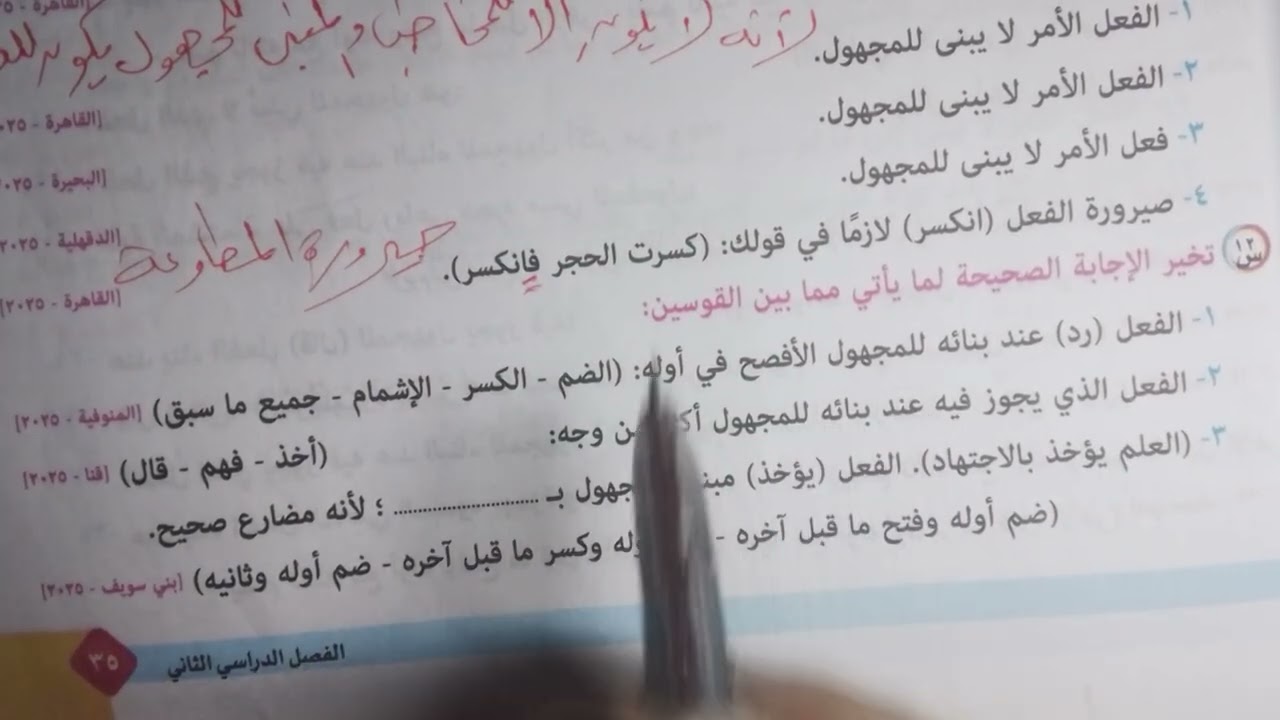 ١- الفعل الأمر لا يبنى للمجهول.
لأنه لا يكون إلا للمخاطب والمبني للمجهول يكون
٢- الفعل الأمر لا يبنى للمجهول. [القاهرة -
٣- فعل الأمر لا يبنى للمجهول. [البحيرة -
٤- صيرورة الفعل (انكسر) لازمًا في قولك: (كسرت الحجر فإنكسر). [الدقهلية - ٢٠٢٥
صيرورة المطاوعة
[القاهرة - ٢٠٢٥]
س١٢ تخير الإجابة الصحيحة لما يأتي مما بين القوسين:
١- الفعل (رد) عند بنائه للمجهول الأفصح في أوله: (الضم - الكسر - الإشمام - جميع ما سبق) [المنوفية - ٢٠٢٥]
٢- الفعل الذي يجوز فيه عند بنائه للمجهول وجه: (أخذ - فهم - قال) [قنا - ٢٠٢٥]
٣- (العلم يؤخذ بالاجتهاد). الفعل (يؤخذ) بـ .................... ؛ لأنه مضارع صحيح.
(ضم أوله وفتح ما قبل آخره - وكسر ما قبل آخره - ضم أوله وثانيه) [بني سويف - ٢٠٢٥]
الفصل الدراسي الثاني
٣٥